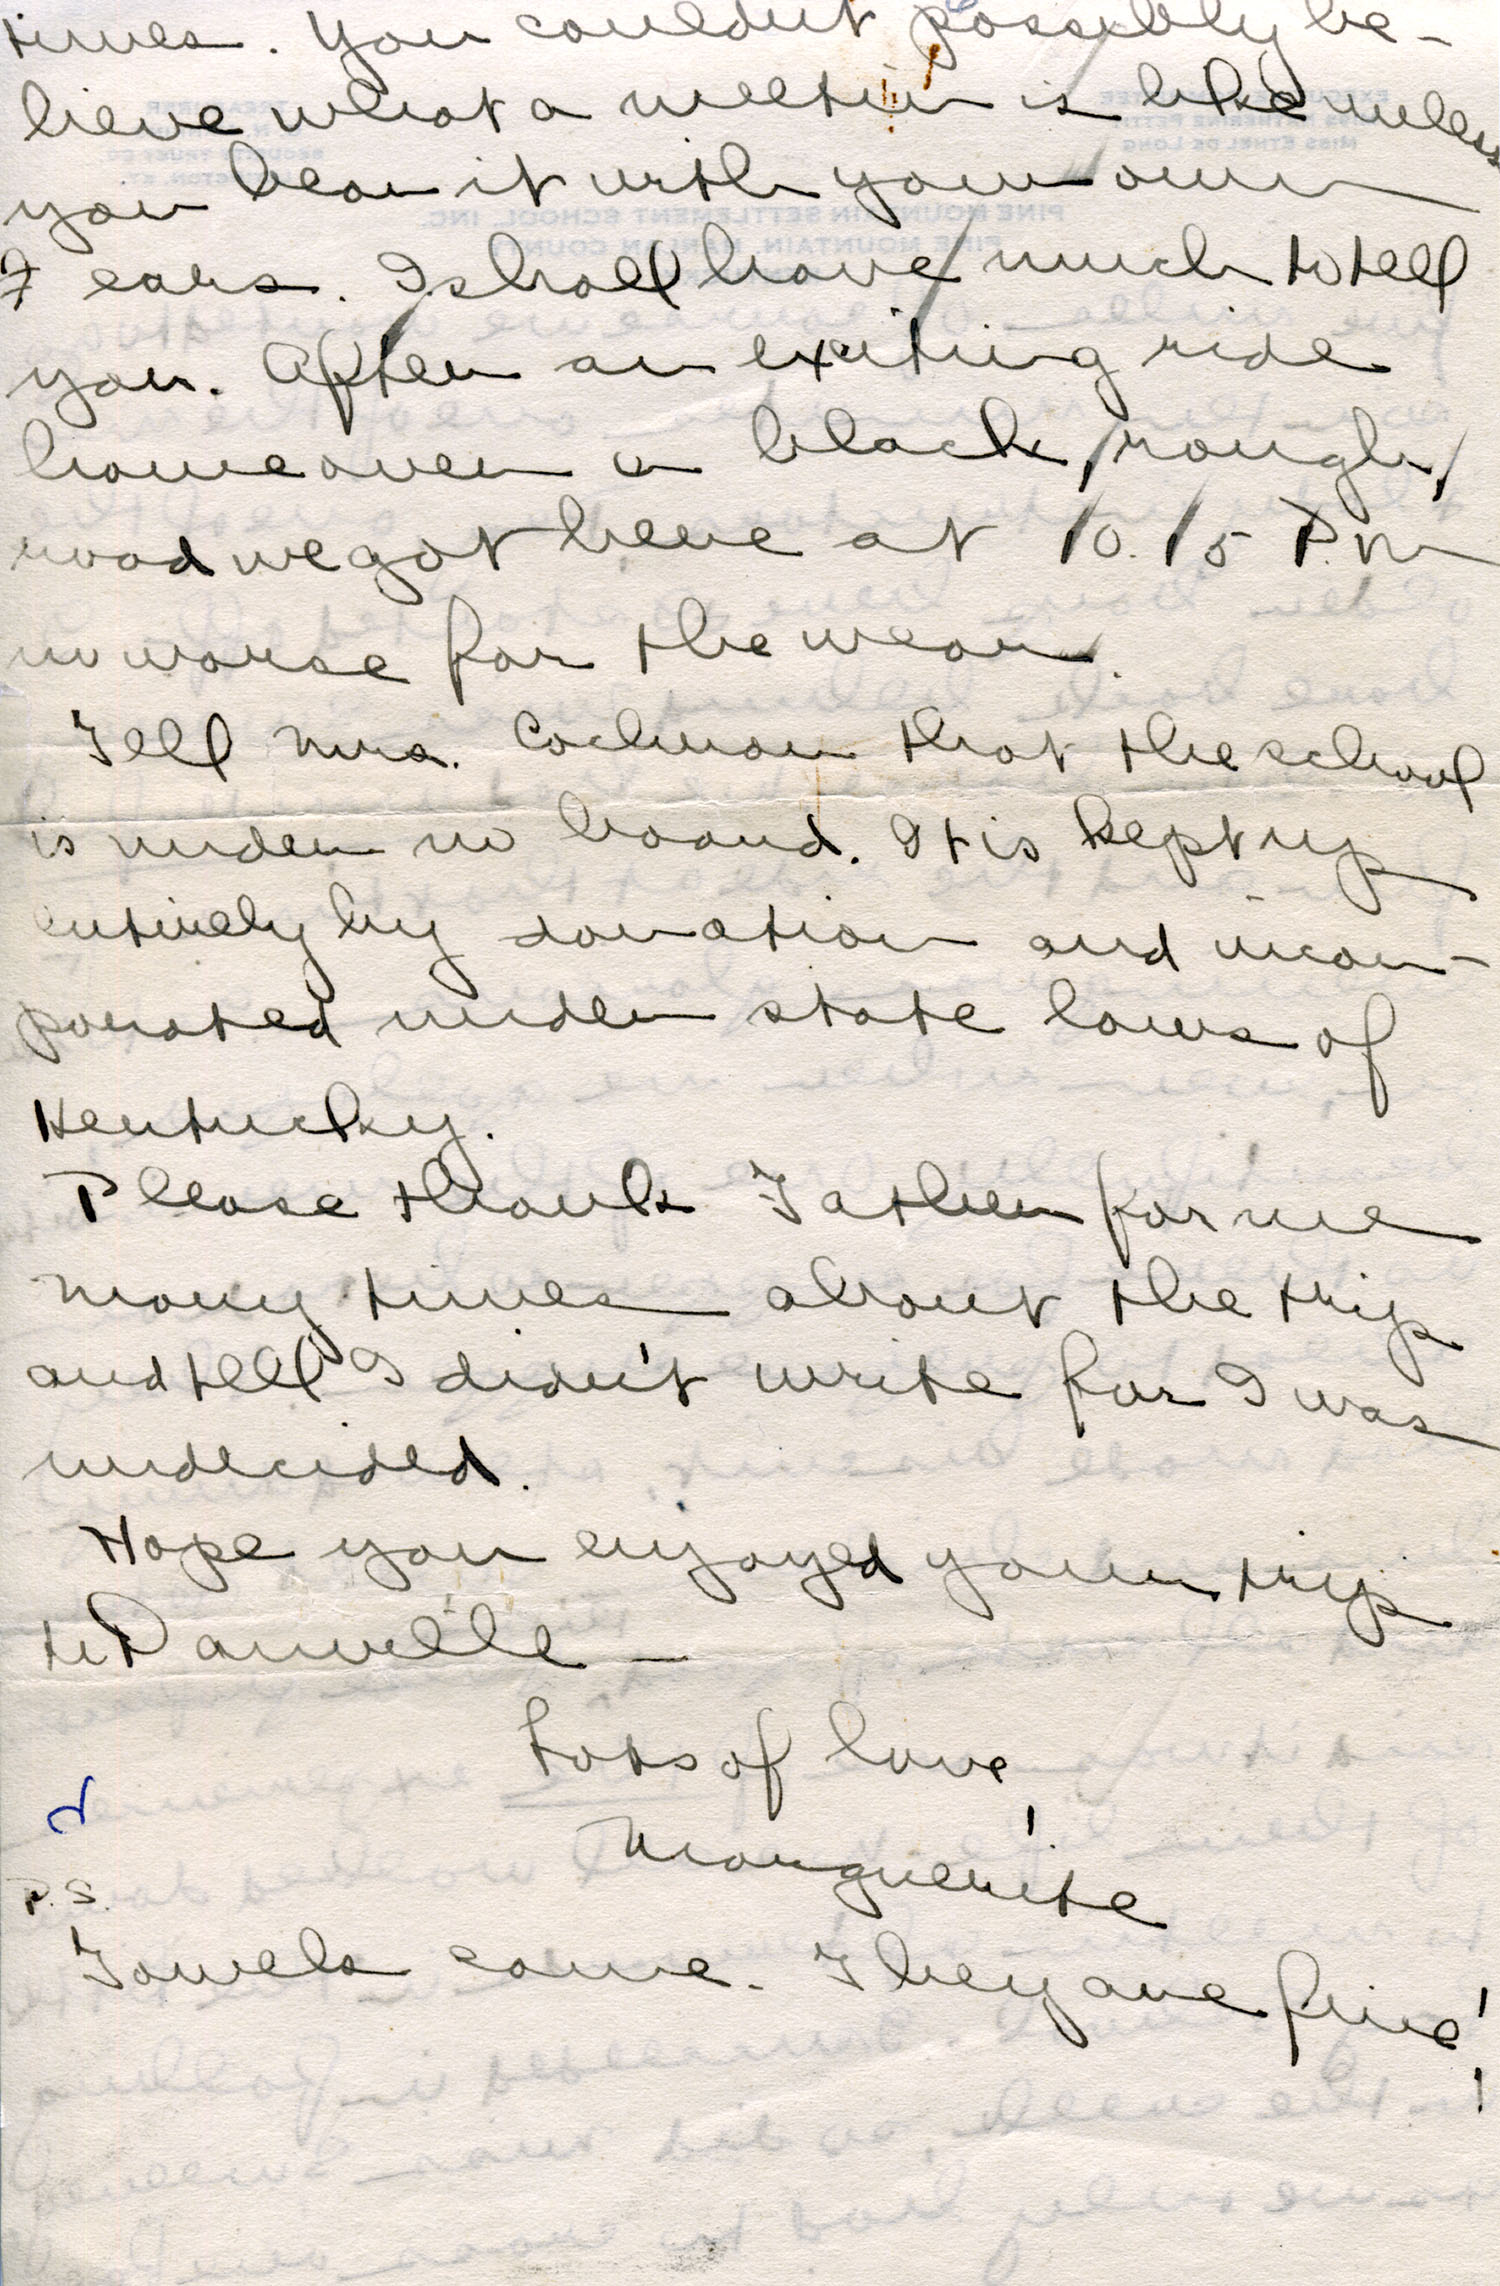 times. You couldn't possibly be-
lieve what a meetin is like unless
you hear it with your own
ears. I shall have much to tell
you. After an exciting ride
home over a black, rough,
road we got here at 10.15 P.M
no worse for the wear.
Tell Mrs. Cochran that the school
is under no board. It is kept up
entirely by donation and incor-
porated under state laws of
Kentucky.
Please thank Father for me
many times about the trip
and tell I didn't write for I was
undecided.
Hope you enjoyed your trip
to Danville –
Lots of love
Marguerite
P.S.
Towels came. They are fine!